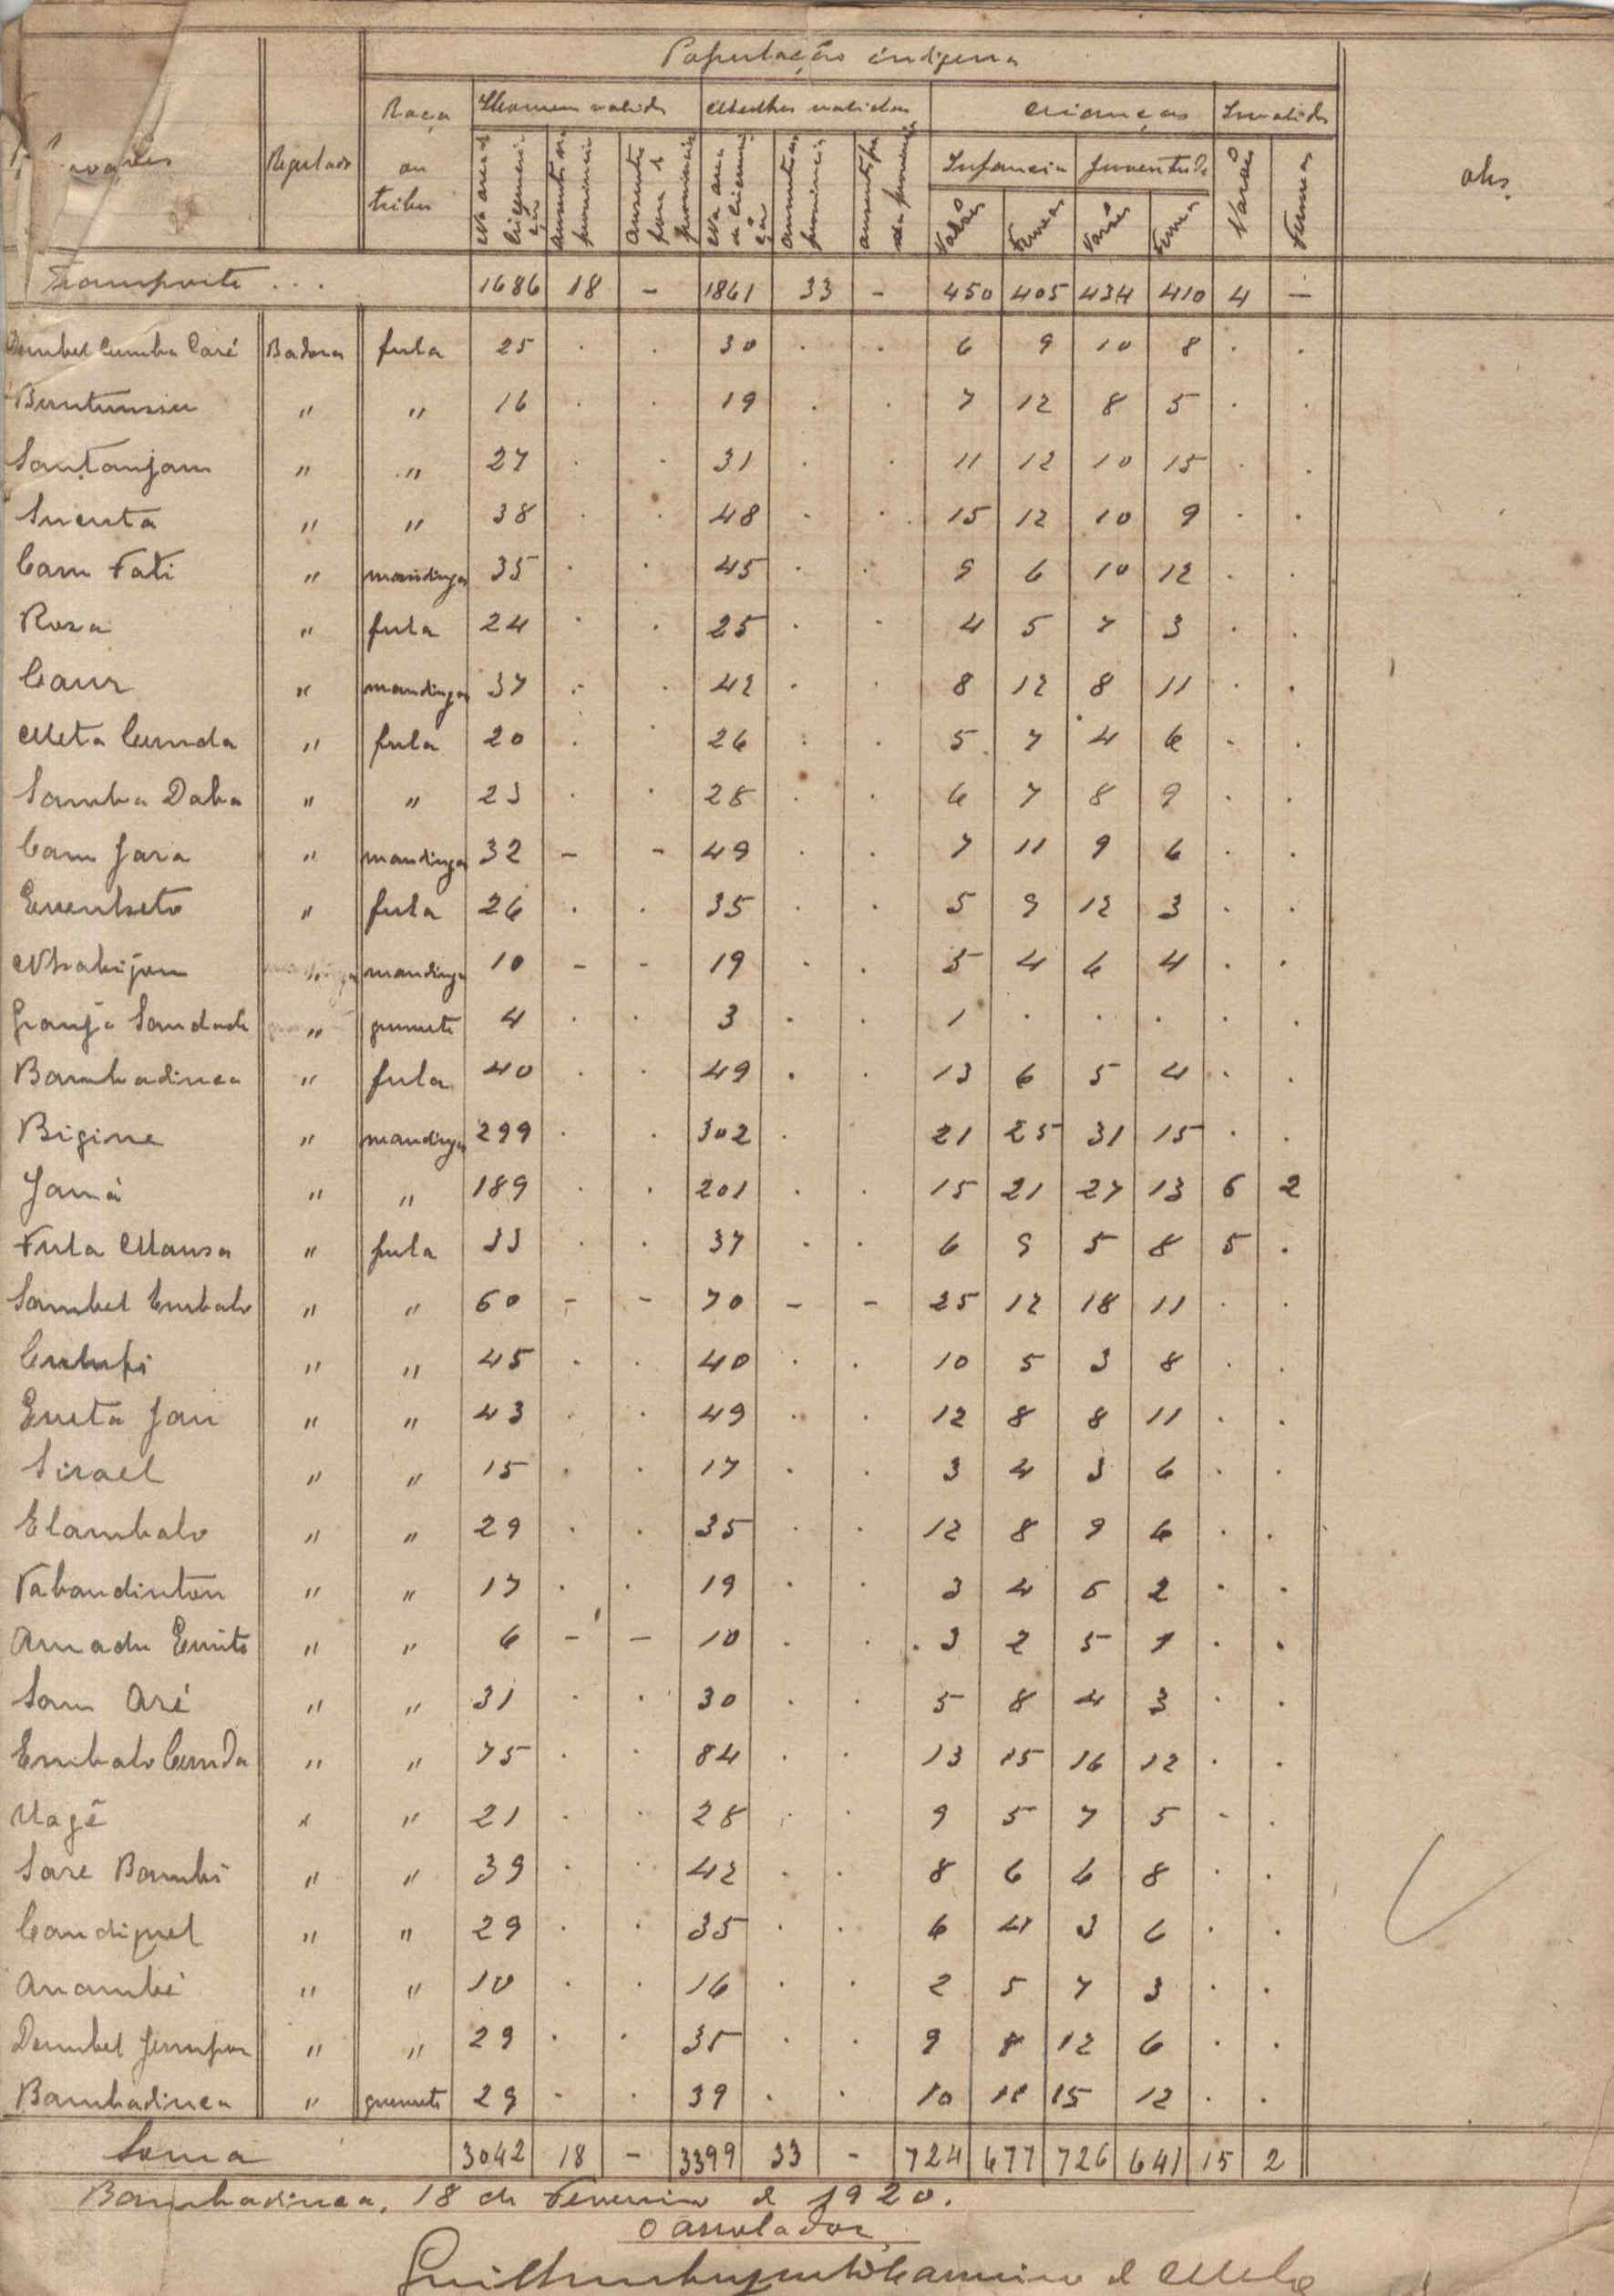 População indigena
Povoações | Regulado | Raça ou tribu | Homens validos | Mulheres validas | Crianças | Invalidos | Obs.
Na area da circunscrição | ausentes na provincia | Ausentes fora da provincia | Na area da circunscrição | ausentes na provincia | ausentes fora da provincia | Infancia | Juventude | Varões | Femeas
Varões | Femeas | Varões | Femeas
Transporte ... | 1686 | 18 | - | 1861 | 33 | - | 450 | 405 | 434 | 410 | 4 | -
Dembel Cumba Caré | Badora | fula | 25 | . | . | 30 | . | . | 6 | 9 | 10 | 8 | . | .
Buntunssu | " | " | 16 | . | . | 19 | . | . | 7 | 12 | 8 | 5 | . | .
Santanjam | " | " | 27 | . | . | 31 | . | . | 11 | 12 | 10 | 15 | . | .
Sucuta | " | " | 38 | . | . | 48 | . | . | 15 | 12 | 10 | 9 | . | .
Cam Fati | " | mandinga | 35 | . | . | 45 | . | . | 9 | 6 | 10 | 12 | . | .
Roza | " | fula | 24 | . | . | 25 | . | . | 4 | 5 | 7 | 3 | . | .
Caur | " | mandinga | 37 | . | . | 42 | . | . | 8 | 12 | 8 | 11 | . | .
Meta Cunda | " | fula | 20 | . | . | 26 | . | . | 5 | 7 | 4 | 6 | . | .
Samba Daba | " | " | 23 | . | . | 28 | . | . | 6 | 7 | 8 | 9 | . | .
Cam Jara | " | mandinga | 32 | - | - | 49 | . | . | 7 | 11 | 9 | 6 | . | .
Queuheto | " | fula | 26 | . | . | 35 | . | . | 5 | 9 | 12 | 3 | . | .
Nhabijam | " | mandinga | 10 | - | - | 19 | . | . | 5 | 4 | 6 | 4 | . | .
Granja Saudade | " | grumete | 4 | . | . | 3 | . | . | 1 | . | . | . | . | .
Bambadinca | " | fula | 40 | . | . | 49 | . | . | 13 | 6 | 5 | 4 | . | .
Bigine | " | mandinga | 299 | . | . | 302 | . | . | 21 | 25 | 31 | 15 | . | .
Janá | " | " | 189 | . | . | 201 | . | . | 15 | 21 | 27 | 13 | 6 | 2
Fula Mansa | " | fula | 33 | . | . | 37 | . | . | 6 | 9 | 5 | 8 | 5 | .
Sambel Embalo | " | " | 60 | - | - | 70 | - | - | 25 | 12 | 18 | 11 | . | .
Culufi | " | " | 45 | . | . | 40 | . | . | 10 | 5 | 3 | 8 | . | .
Queta Jau | " | " | 43 | . | . | 49 | . | . | 12 | 8 | 8 | 11 | . | .
Sirael | " | " | 15 | . | . | 17 | . | . | 3 | 4 | 3 | 6 | . | .
Elambalo | " | " | 29 | . | . | 35 | . | . | 12 | 8 | 9 | 6 | . | .
Vabandinton | " | " | 17 | . | . | 19 | . | . | 3 | 4 | 6 | 2 | . | .
Amadu Quito | " | " | 6 | - | - | 10 | . | . | 3 | 2 | 5 | 7 | . | .
Sam Aré | " | " | 31 | . | . | 30 | . | . | 5 | 8 | 4 | 3 | . | .
Embalo Cunda | " | " | 75 | . | . | 84 | . | . | 13 | 15 | 16 | 12 | . | .
Uagé | " | " | 21 | . | . | 28 | . | . | 9 | 5 | 7 | 5 | - | .
Sare Bambi | " | " | 39 | . | . | 42 | . | . | 8 | 6 | 6 | 8 | . | .
Candiquel | " | " | 29 | . | . | 35 | . | . | 6 | 4 | 3 | 6 | . | .
Anambé | " | " | 10 | . | . | 16 | . | . | 2 | 5 | 7 | 3 | . | .
Dembel Jumpor | " | " | 29 | . | . | 35 | . | . | 9 | 8 | 12 | 6 | . | .
Bambadinca | " | grumete | 29 | . | . | 39 | . | . | 10 | 11 | 15 | 12 | . | .
Soma | 3042 | 18 | - | 3399 | 33 | - | 724 | 677 | 726 | 641 | 15 | 2
Bambadinca, 18 de Fevereiro de 1920.
O arrolador,
de Mello